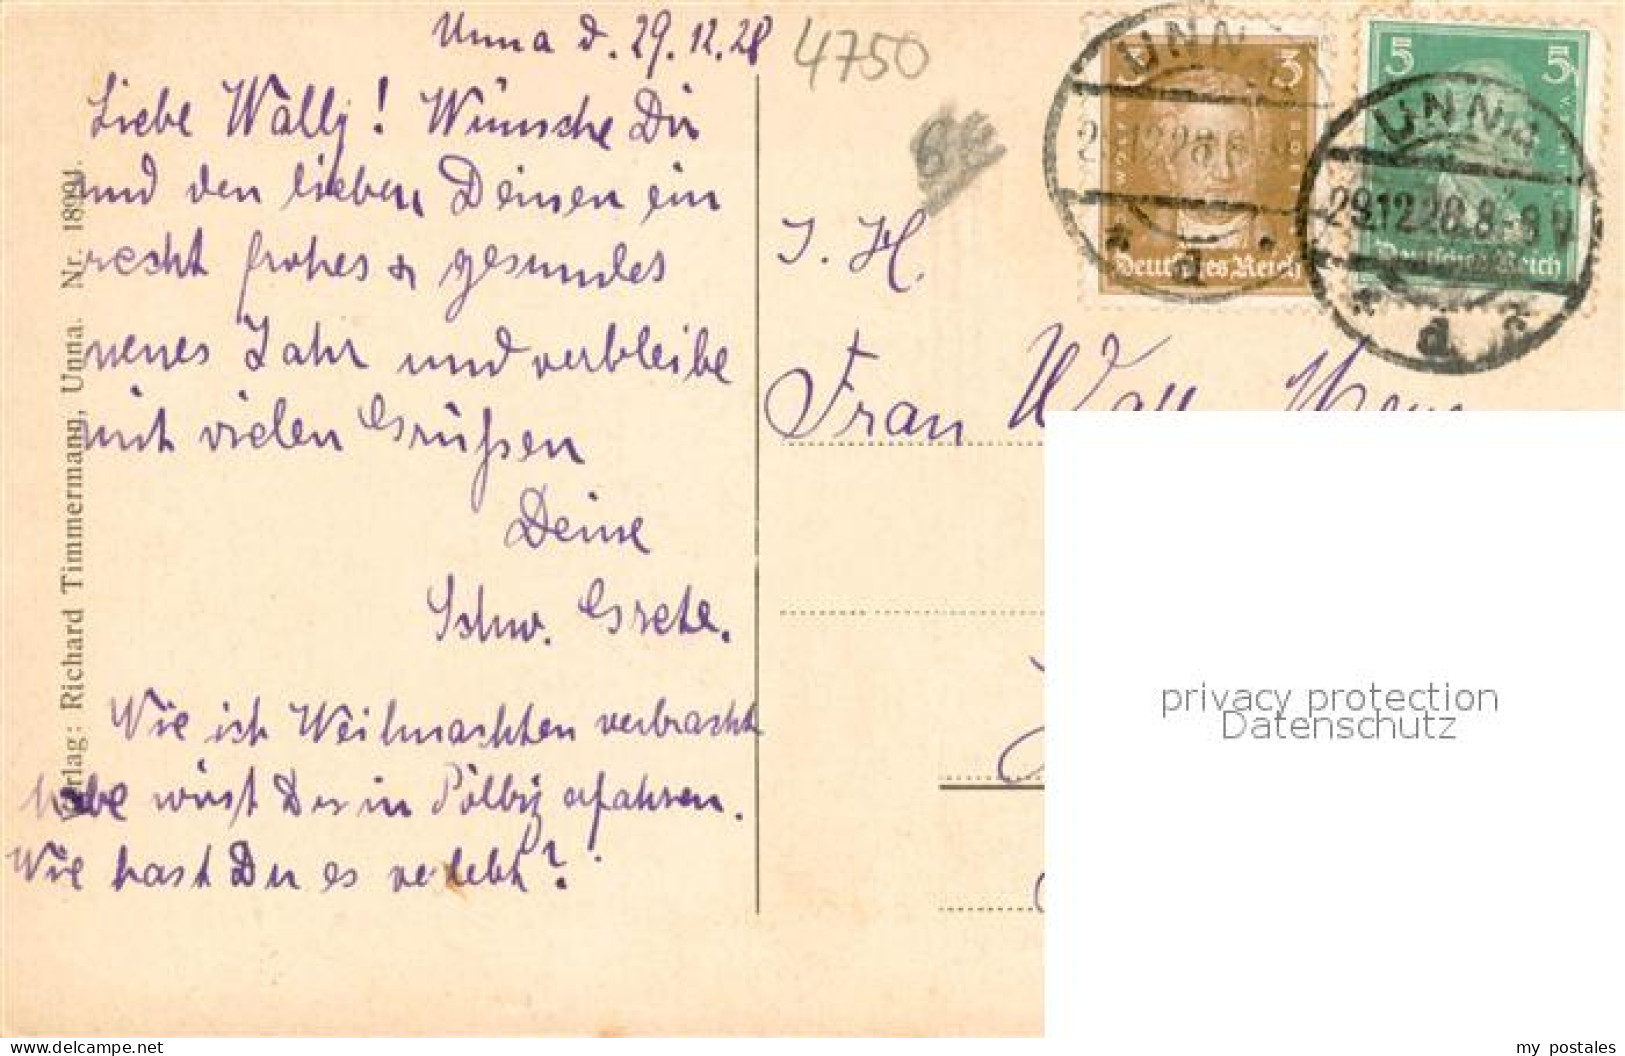 Unna d. 29.12.28
4750
Liebe Wally! Wünsche Dir
und den lieben Deinen ein
recht frohes & gesundes
neues Jahr und verbleibe
mit vielen Grüßen
Deine
Schw. Grete.
Wie ich Weihnachten verbracht
habe wirst Du in Pölbig erfahren.
Wie hast Du es verlebt?
Verlag: Richard Timmermann, Unna. Nr. 18991.
UNNA
3 3
Deutsches Reich
d
UNNA
5 5
29.12.28.8-9V
Deutsches Reich
d
I. H.
Frau Wally
privacy protection
Datenschutz
my postales
www.delcampe.net